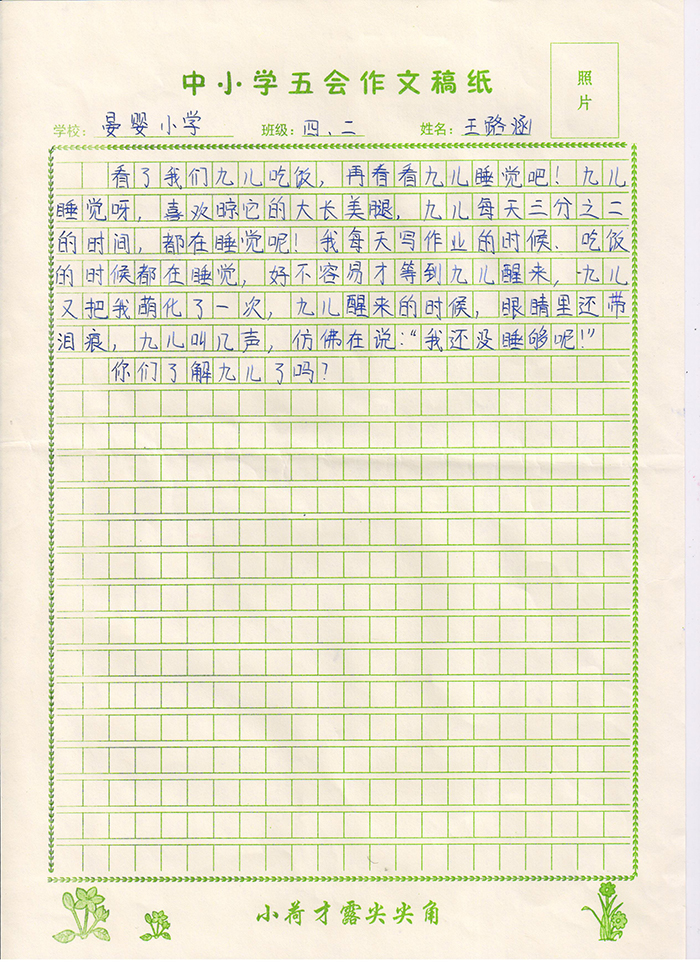 中小学五会作文稿纸
照
片
学校：晏婴小学 班级：四、二 姓名：王路涵
看了我们九儿吃饭，再看看九儿睡觉吧！九儿
睡觉呀，喜欢晾它的大长美腿，九儿每天三分之二
的时间，都在睡觉呢！我每天写作业的时候、吃饭
的时候都在睡觉，好不容易才等到九儿醒来，九儿
又把我萌化了一次，九儿醒来的时候，眼睛里还带
泪痕，九儿叫几声，仿佛在说：“我还没睡够呢！”
你们了解九儿了吗？
小荷才露尖尖角